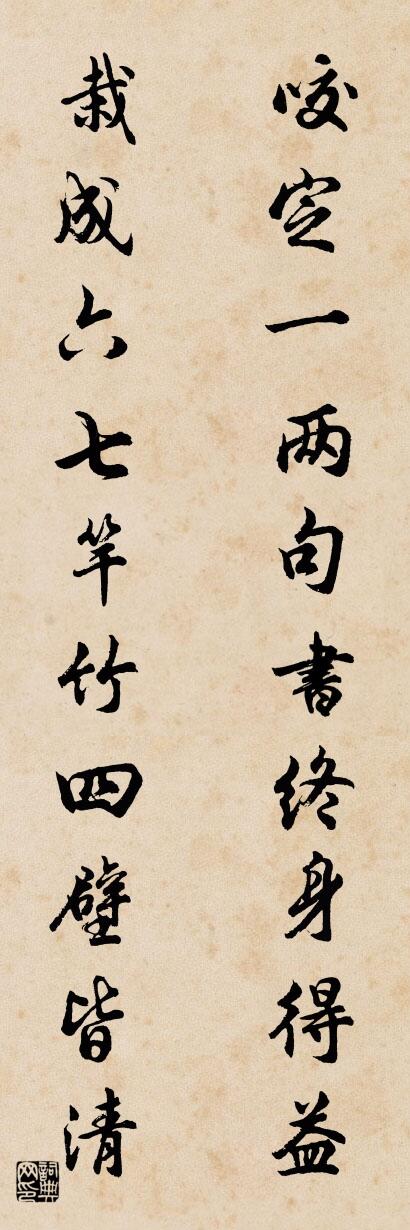 咬定一两句书终身得益
栽成六七竿竹四壁皆清
詞典网印